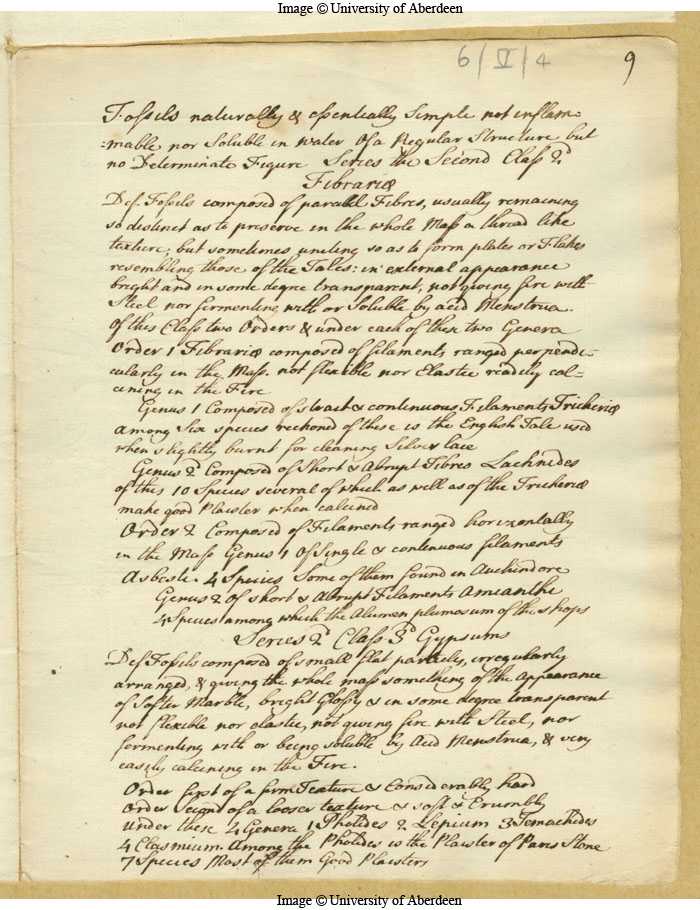 Image © University of Aberdeen
6/V/4
9
Fossils naturally & essentially Simple not inflam=
=mable nor Soluble in water Of a Regular Structure but
no Determinate Figure Series the Second Class 2d
Fibrariæ
Def. Fossils composed of parallel Fibres, usually remaining
so distinct as to preserve in the whole Mass a thread like
texture; but sometimes uniting so as to form plates or Flakes
resembling those of the Talcs: in external appearance
bright and in some degree transparent, not giving fire with
Steel nor fermenting with or Soluble by acid Menstrua.
Of this Class two Orders & under each of them two Genera
Order 1 Fibrariæ composed of filaments ranged perpendi=
cularly in the Mass. not flexible nor Elastic readily cal=
cining in the Fire
Genus 1 Composed of strait & continuous Filaments Tricheriæ
Among Six species reckond of these is the English Talc used
when slightly burnt for cleaning Silver lace
Genus 2 Composed of Short & Abrupt Fibres Lachnides
of this 10 Species several of which as well as of the Tricheriæ
make good Plaister when calcined
Order 2 Composed of Filaments ranged horizontally
in the Mass Genus 1 Of Single & continuous filaments
Asbesti. 4 Species Some of them found in Auchindore
Genus 2 Of short & Abrupt Filaments Amianthi
4 Species among which the Alumen plumosum of the shops
Series 2d Class 3d Gypsums
Def Fossils composed of small flat particles, irregularly
arranged, & giving the whole mass something of the Appearance
of Softer Marble, bright Glossy & in some degree transparent
not flexible nor elastic, not giving fire with Steel, nor
fermenting with or being soluble by Acid Menstrua, & very
easily calcining in the Fire.
Order first of a firm Texture & Considerably hard
Order second of a looser texture & soft & Crumbly
Under these 4 Genera 1 Pholides 2 Lepium 3 Temachides
4 Clasmium. Among the Pholides is the Plaister of Paris Stone
7 Species Most of them Good Plaisters
Image © University of Aberdeen